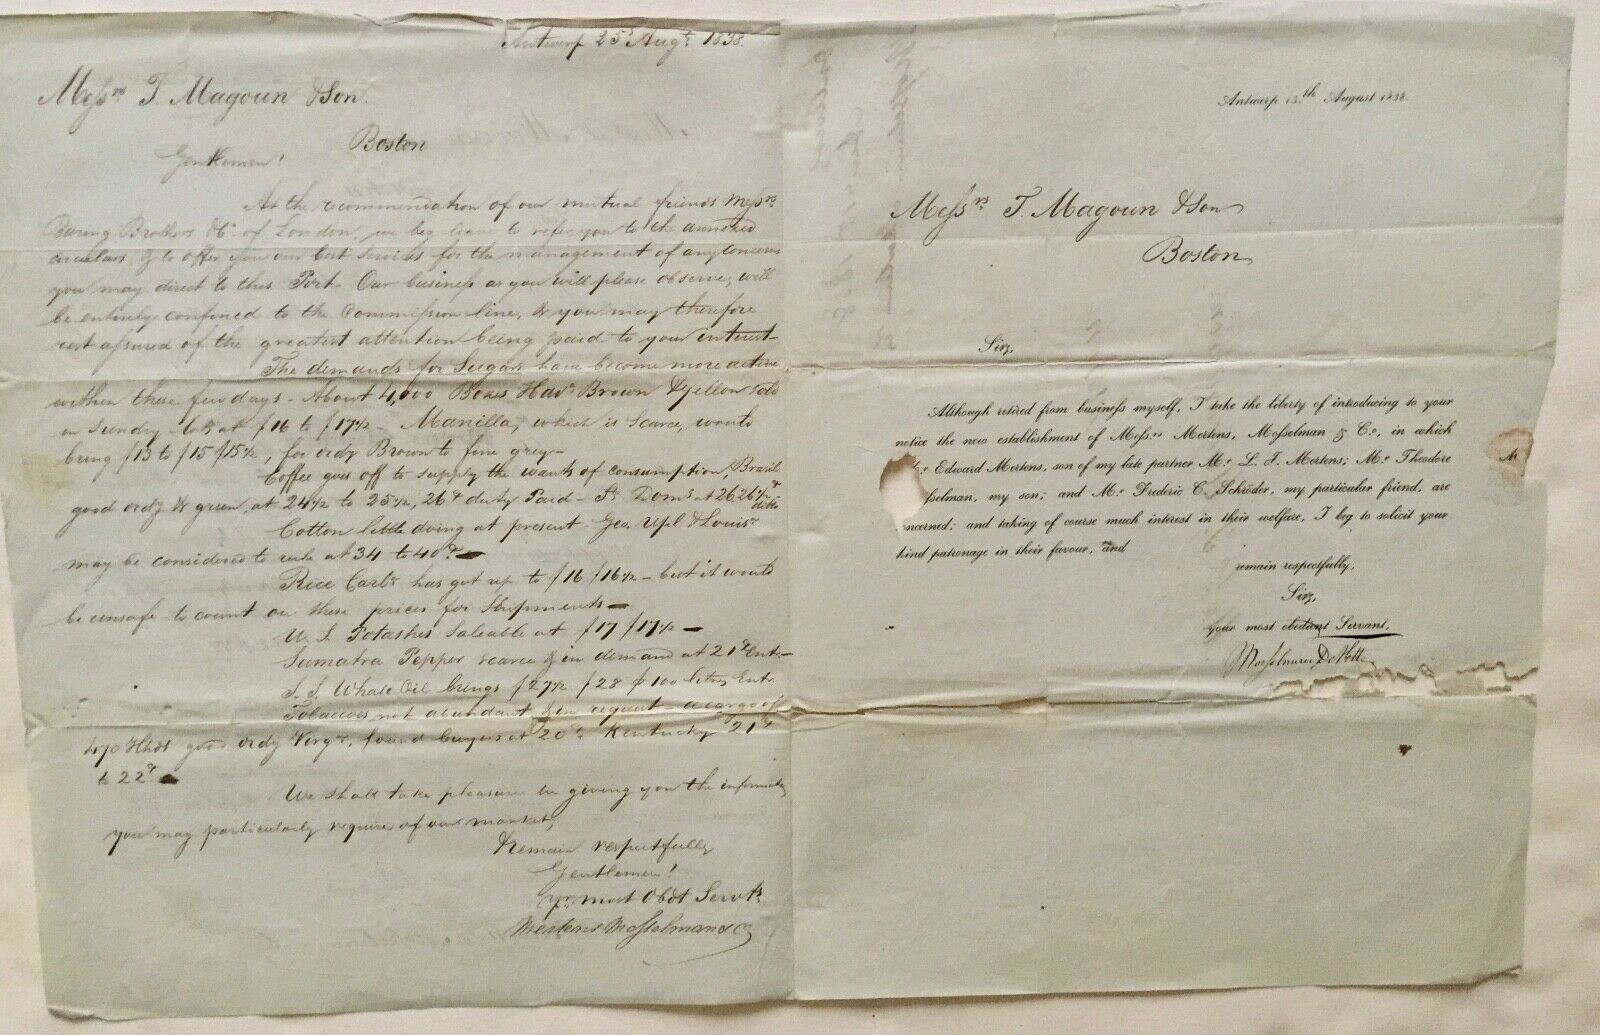 Antwerp 25t Augt 1838.
Messrs T. Magoun & Son.
Boston
Gentlemen!
At the recommendation of our mutual friends Messrs
Baring Brothers & Co. of London, we beg leave to refer you to the annexed
circulars, & to offer you our best services for the management of any concerns
you may direct to this Port. Our business as you will please observe, will
be entirely confined to the Commission line, & you may therefore
rest assured of the greatest attention being paid to your interest
The demands for Sugars have become more active,
within these few days - About 4,000 Boxes Hava Brown & Yellow sold
in Sundry lots at f16 to f17½ - Manilla, which is scarce, would
bring f13 to f15 f15½, for ordy Brown to fine grey -
Coffee goes off to supply the wants of consumption, Brasil
good ordy & green, at 24½ to 25½, 26 ct duty Paid - St Domo at 26, 26½ ct
ditto
Cotton little doing at present. Geo. Upl & Louisa
may be considered to rule at 34 to 40 ct -
Rice Carla has got up to f16 f16½ - but it would
be unsafe to count on these prices for Shipments -
U. S. Potashes Saleable at f17 f17½ -
Sumatra Pepper scarce & in demand at 21 ct Ent. -
S. S. Whale Oil brings f27½ f28 100 litres, Ent.
Tobaccoes not abundant & in request - a cargo of
470 Hhds good ordy Virga, found buyers at 20 ct Kentucky 21 ct
to 22 ct -
We shall take pleasure in giving you the information
you may particularly require of our market,
& remain respectfully
Gentlemen!
Yr. most Obdt Servts.
Mertens Mosselman & Co
Antwerp 13.th August 1838.
Messrs T. Magoun & Son
Boston
Sir,
Although retired from business myself, I take the liberty of introducing to your
notice the new establishment of Mess.rs Mertens, Mosselman & C.o, in which
Edward Mertens, son of my late partner M.r L. F. Mertens; M.r Theodore
sselman, my son; and M.r Frederic C. Schröder, my particular friend, are
oncerned; and taking of course much interest in their welfare, I beg to solicit your
kind patronage in their favour, and
remain respectfully,
Sir,
Your most obedient Servant,
M